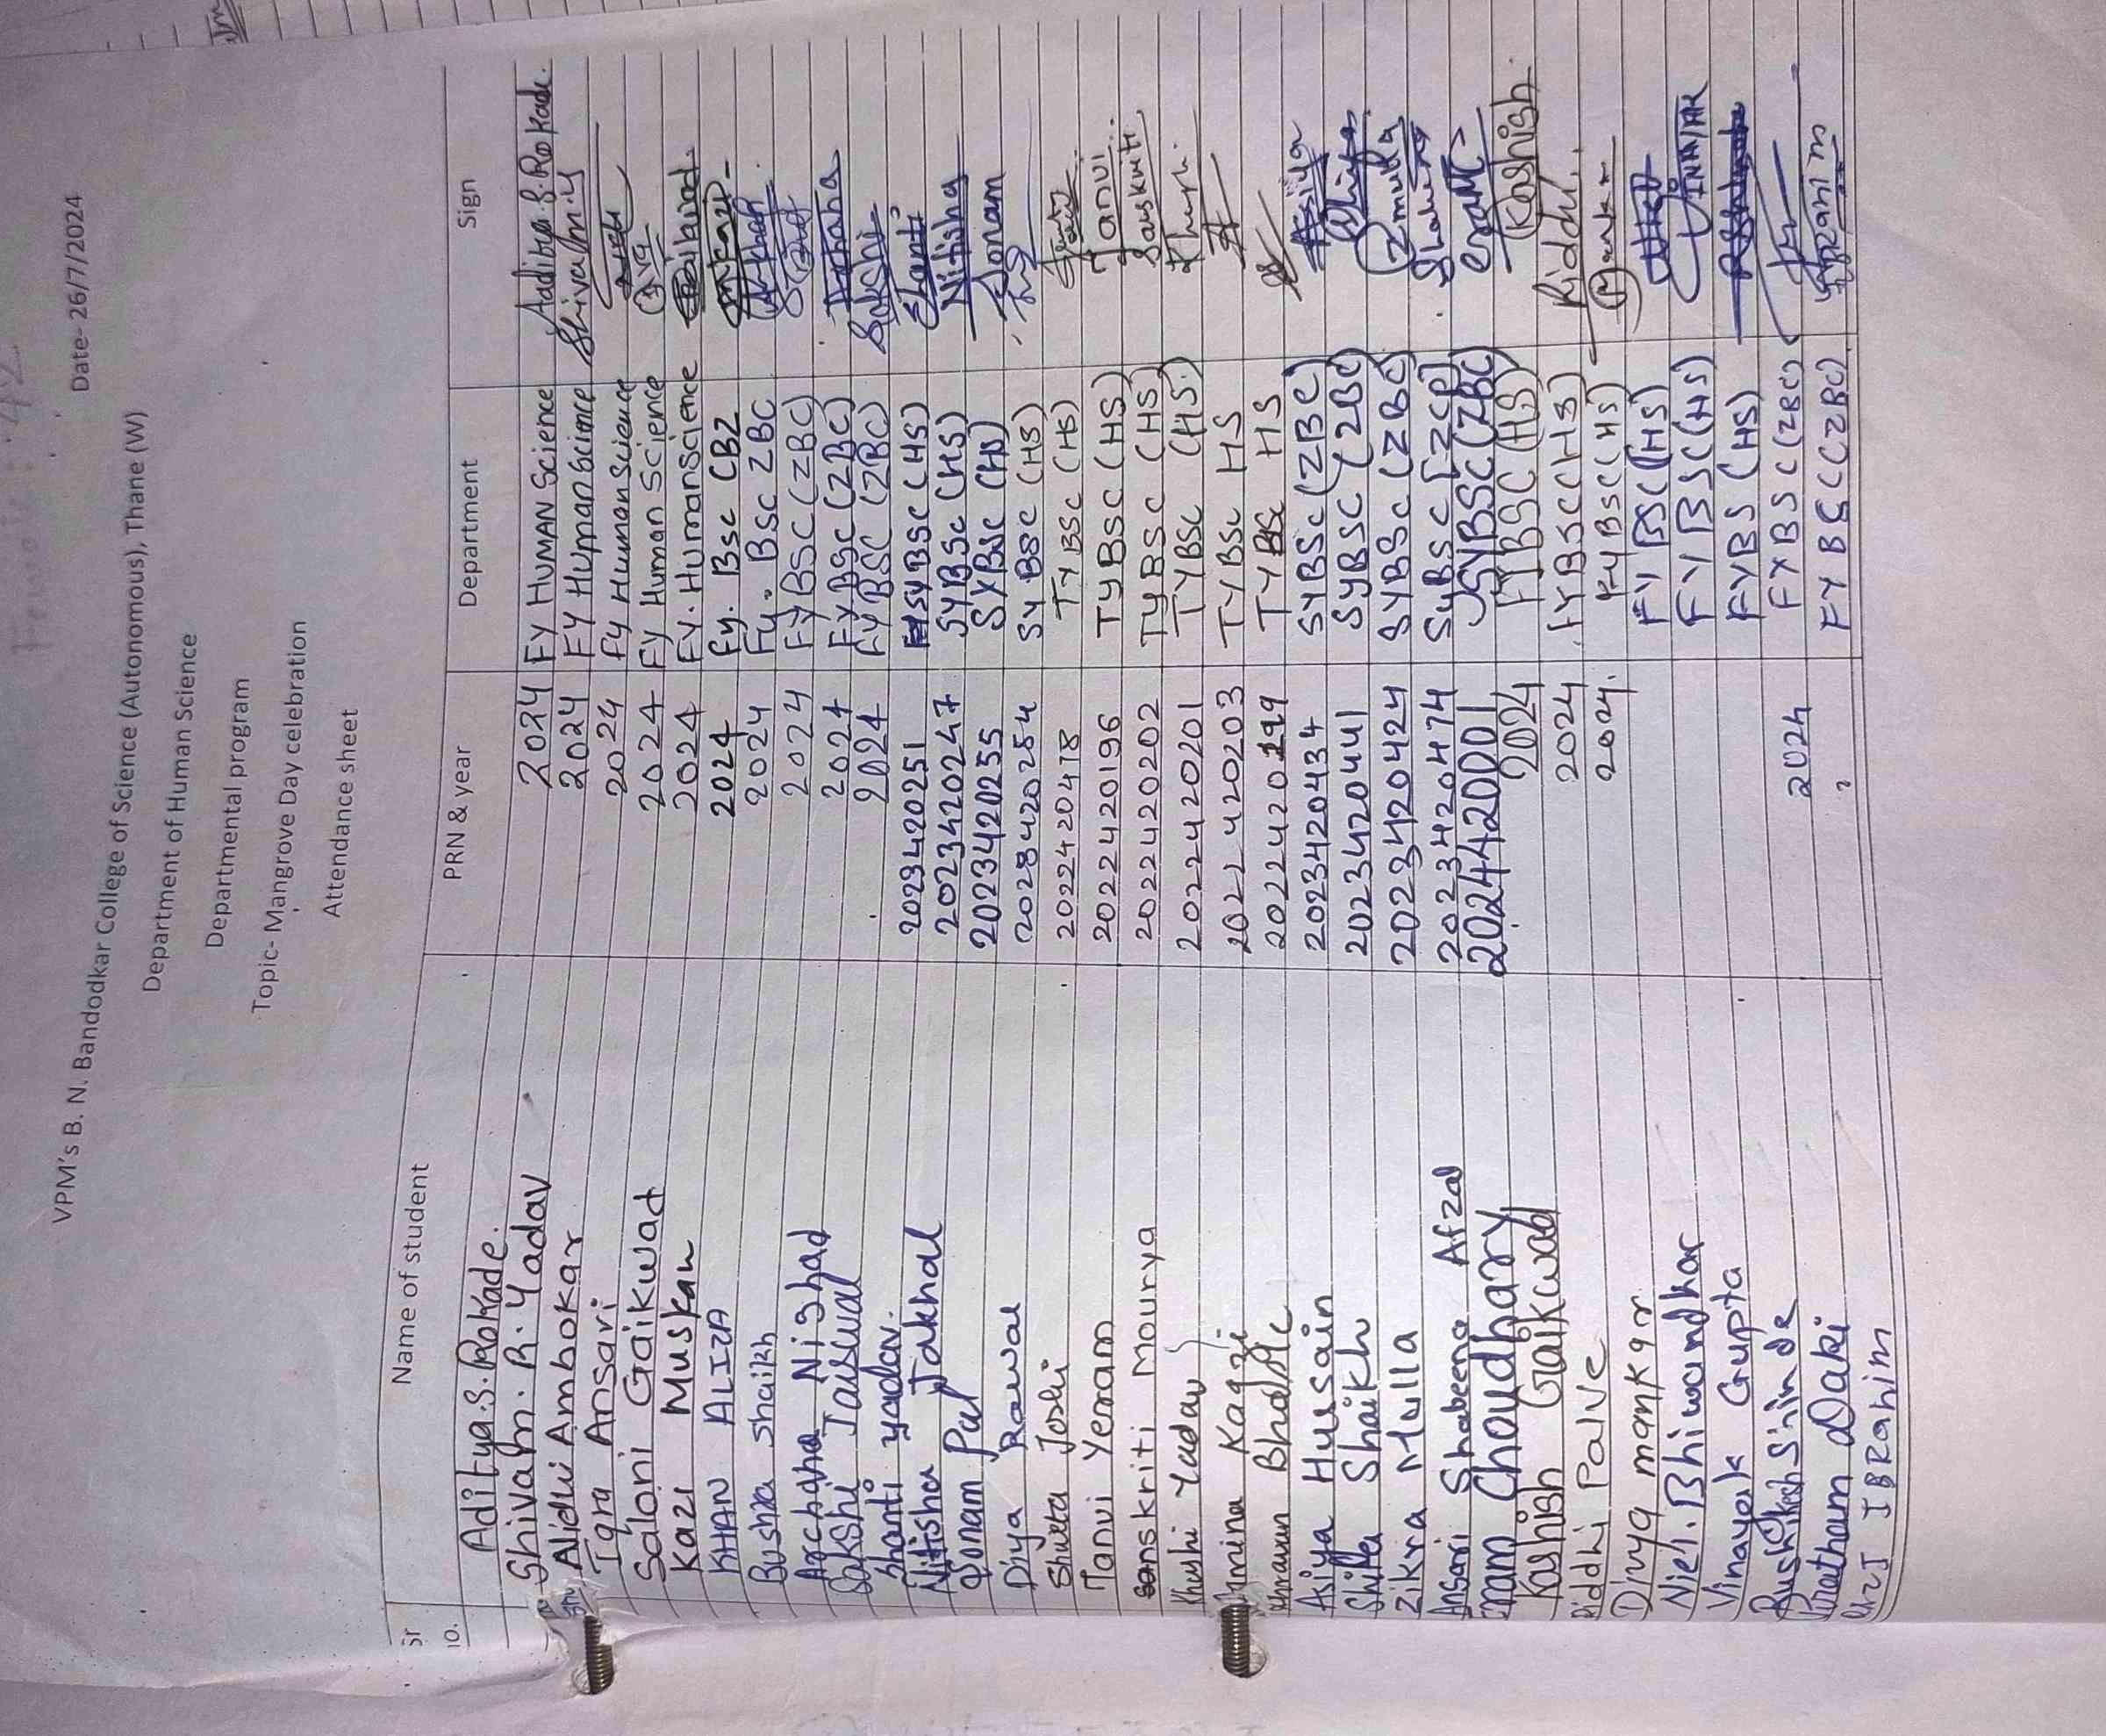 VPM's B. N. Bandodkar College of Science (Autonomous), Thane (W)
Date- 26/7/2024
Department of Human Science
Departmental program
Topic- Mangrove Day celebration
Attendance sheet
Sr no. Name of student PRN & year Department Sign
Aditya.S.Rokade. 2024 FY HUMAN Science Aditya.S.Rokade.
Shivam.R.Yadav 2024 FY Human Science Shivam.Y
Nidhi Ambokar 2024 Fy Human Science
Iqra Ansari 2024 Fy Human Science
Saloni Gaikwad 2024 FY. Human science
Kazi Muskan 2024 Fy. Bsc CBZ
KHAN ALIZA 2024 Fy. Bsc ZBC
Bushra Shaikh 2024 FYBSC (ZBC)
Archana Nishad 2024 FYBSc (ZBC) Archana
Sakshi Jaiswal 2024 FYBSC (ZBC) Sakshi
Shanti yadav. 2023420251 SYBSc (HS) Shanti
Nitisha Jakhal 2023420247 SYBSc (HS) Nitisha
Sonam Pal 2023420255 SYBSC (HS) Sonam
Diya Rawal SYBSC (HS)
Shweta Joshi TYBSc (HS)
Tanvi Yeram 2022420196 TYBSC (HS) Tanvi
Sanskriti Mourya 2022420202 TYBSC (HS) Sanskriti
Khushi Yadav 2022420201 TYBSC (HS)
Kagzi 2022420203 TYBSc HS
2022420199 TYBSc HS
Asiya Husain 2023420434 SYBSc (ZBC) Asiya
Shifa Shaikh 2023420441 SYBSC (ZBC)
Zikra Mulla 2023420424 SYBSc (ZBC) Zmulla
Ansari Shabeena Afzal 2023420474 SyBSc
Choudhary 2024420001 SYBSC (ZBC)
Kashish Gaikwad 2024 FYBSC (HS) Kashish
Riddhi Palve 2024 FYBSC (HS) Riddhi.
Divya mankar 2024. FYBSC (HS)
Niel. Bhiwandkar FYBSC (HS)
Vinayak Gupta FYBSC (HS) VINAYAK
Rushikesh Shinde FYBS (HS)
Daki 2024 FYBSC (ZBC)
IBRahim FYBSC (ZBC)